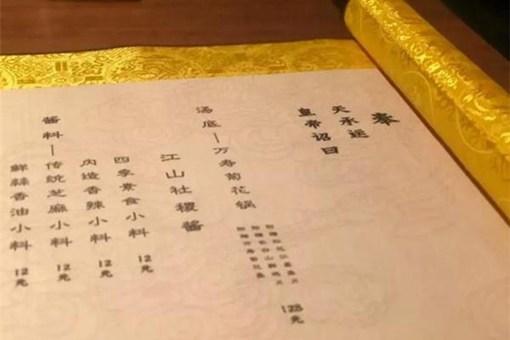 奉
天承运
皇帝诏曰
汤底—万寿菊花锅
128元
江山社稷酱
四季素食小料 12元
香辣小料 12元
酱料—传统芝麻小料 12元
鲜蒜香油小料 12元